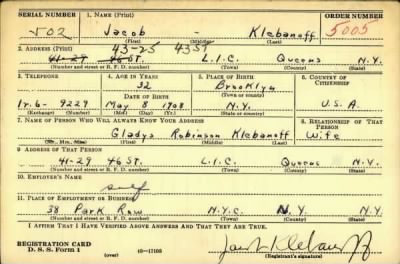 SERIAL NUMBER 1. NAME (Print) ORDER NUMBER
502 Jacob - Klebanoff 5005
(First) (Middle) (Last)
2. ADDRESS (Print) 43-25 43 ST
41-29 46 ST. L.I.C. Queens N.Y.
(Number and street or R. F. D. number) (Town) (County) (State)
3. TELEPHONE 4. AGE IN YEARS 5. PLACE OF BIRTH 6. COUNTRY OF CITIZENSHIP
32 Brooklyn
DATE OF BIRTH (Town or county)
Ir.6- 9229 May 8 1908 N.Y. U.S.A.
(Exchange) (Number) (Mo.) (Day) (Yr.) (State or country)
7. NAME OF PERSON WHO WILL ALWAYS KNOW YOUR ADDRESS 8. RELATIONSHIP OF THAT PERSON
Gladys Robinson Klebanoff Wife
(Mr., Mrs., Miss) (First) (Middle) (Last)
9. ADDRESS OF THAT PERSON
41-29 46 ST. L.I.C. Queens N.Y.
(Number and street or R. F. D. number) (Town) (County) (State)
10. EMPLOYER'S NAME
self
11. PLACE OF EMPLOYMENT OR BUSINESS
38 Park Row N.Y.C. N.Y N.Y.
(Number and street or R. F. D. number) (Town) (County) (State)
I AFFIRM THAT I HAVE VERIFIED ABOVE ANSWERS AND THAT THEY ARE TRUE.
REGISTRATION CARD
D. S. S. Form 1 (over) 16-17105 Jacob Klebanoff
(Registrant's signature)